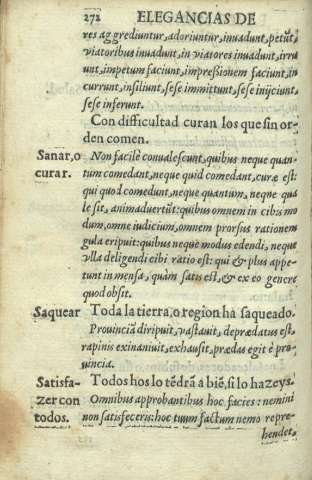 272 ELEGANCIAS DE
res aggrediuntur, adoriuntur, inuadunt, petūt,
viatoribus inuadunt, in viatores inuadunt, irru
unt, impetum faciunt, impressionem faciunt, in
currunt, insiliunt, sese immittunt, sese inijciunt,
sese inferunt.
Con difficultad curan los que sin or-
den comen.
Sanar, o
curar.
Non facilè conualescunt, quibus neque quan-
tum comedant, neque quid comedant, curæ est:
qui quod comedunt, neque quantum, neque qua
le sit, animaduertūt: quibus omnem in cibis mo
dum, omne iudicium, omnem prorsus rationem
gula eripuit: quibus neque modus edendi, neque
vlla deligendi cibi ratio est: qui & plus appe-
tunt in mensa, quàm satis est, & ex eo genere
quod obsit.
Saquear
Toda la tierra, o region ha saqueado.
Prouinciā diripuit, vastauit, deprædatus est,
rapinis exinaniuit, exhausit, prædas egit è pro-
uincia.
Satisfa-
zer con
todos.
Todos hos lo tēdrā a biē, si lo hazeys.
Omnibus approbantibus hoc facies: nemini
non satisfeceris: hoc tuum factum nemo repre-
hendet,